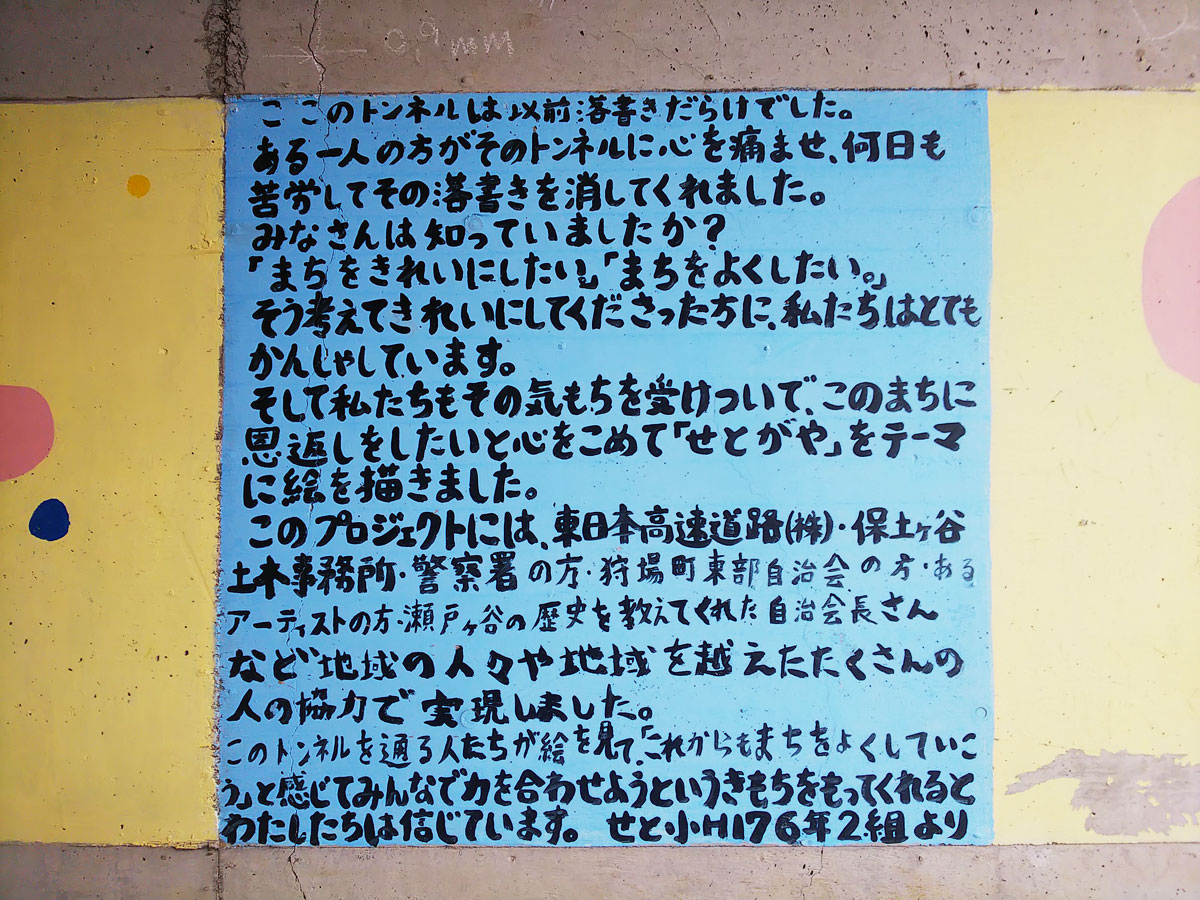 0.9mm
ここのトンネルは以前落書きだらけでした。
ある一人の方がそのトンネルに心を痛ませ、何日も
苦労してその落書きを消してくれました。
みなさんは知っていましたか？
「まちをきれいにしたい。」「まちをよくしたい。」
そう考えてきれいにしてくださった方に、私たちはとても
かんしゃしています。
そして私たちもその気もちを受けついで、このまちに
恩返しをしたいと心をこめて「せとがや」をテーマ
に絵を描きました。
このプロジェクトには、東日本高速道路(株)・保土ヶ谷
土木事務所・警察署の方・狩場町東部自治会の方・ある
アーティストの方・瀬戸ヶ谷の歴史を教えてくれた自治会長さん
など地域の人々や地域を越えたたくさんの
人の協力で実現しました。
このトンネルを通る人たちが絵を見て、「これからもまちをよくしていこ
う」と感じてみんなで力を合わせようというきもちをもってくれると
わたしたちは信じています。 せと小H17 6年2組より